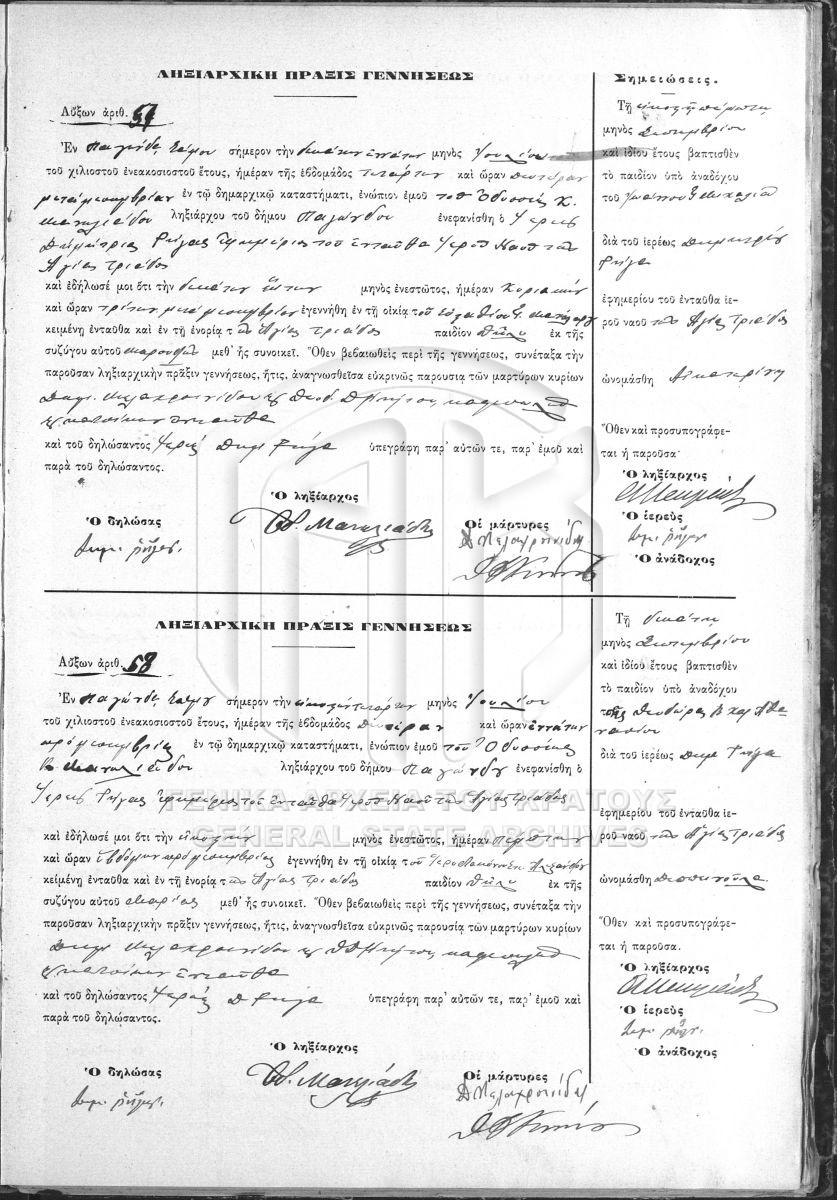 ΛΗΞΙΑΡΧΙΚΗ ΠΡΑΞΙΣ ΓΕΝΝΗΣΕΩΣ
Αὔξων ἀριθ. 57
Ἐν Παγώνδᾳ Σάμου σήμερον τὴν δεκάτην ἐννάτην μηνὸς Ἰουλίου
τοῦ χιλιοστοῦ ἐνεακοσιοστοῦ ἔτους, ἡμέραν τῆς ἑβδομάδος τετάρτην καὶ ὥραν δευτέραν
μεταμεσημβρίαν ἐν τῷ δημαρχικῷ καταστήματι, ἐνώπιον ἐμοῦ τοῦ Ὀδυσσέως Κ.
ληξιάρχου τοῦ δήμου Παγώνδου ἐνεφανίσθη ὁ Ἱερεὺς
Δημήτριος Ῥήγας ἐφημέριος τοῦ ἐνταῦθα Ἱεροῦ Ναοῦ τῆς
Ἁγίας Τριάδος
καὶ ἐδήλωσέ μοι ὅτι τὴν δεκάτην ἕκτην μηνὸς ἐνεστῶτος, ἡμέραν Κυριακὴν
καὶ ὥραν τρίτην μεταμεσημβρίαν ἐγεννήθη ἐν τῇ οἰκίᾳ τοῦ
κειμένῃ ἐνταῦθα καὶ ἐν τῇ ἐνορίᾳ τῆς Ἁγίας Τριάδος παιδίον θῆλυ ἐκ τῆς
συζύγου αὐτοῦ μεθ' ἧς συνοικεῖ. Ὅθεν βεβαιωθεὶς περὶ τῆς γεννήσεως, συνέταξα τὴν
παροῦσαν ληξιαρχικὴν πρᾶξιν γεννήσεως, ἥτις, ἀναγνωσθεῖσα εὐκρινῶς παρουσίᾳ τῶν μαρτύρων κυρίων
Δημ. Μελαχροινίδου
κατοίκων ἐνταῦθα
καὶ τοῦ δηλώσαντος Ἱερέως Δημ Ῥήγα ὑπεγράφη παρ' αὐτῶν τε, παρ' ἐμοῦ καὶ
παρὰ τοῦ δηλώσαντος.
Ὁ ληξίαρχος
Ὁ δηλώσας
Οἱ μάρτυρες
Δημ. Ῥήγας
Δ Μελαχροινίδης
Σημειώσεις.
Τῇ εἰκοστῇ πέμπτῃ
μηνὸς Σεπτεμβρίου
καὶ ἰδίου ἔτους βαπτισθὲν
τὸ παιδίον ὑπὸ ἀναδόχου
τοῦ
διὰ τοῦ ἱερέως Δημητρίου
Ῥήγα
ἐφημερίου τοῦ ἐνταῦθα ἱε-
ροῦ ναοῦ τῆς Ἁγίας Τριάδος
ὠνομάσθη Αἰκατερίνη
Ὅθεν καὶ προσυπογράφε-
ται ἡ παροῦσα.
Ὁ ληξίαρχος
Ὁ ἱερεὺς
Δημ. Ῥήγας
Ὁ ἀνάδοχος
ΛΗΞΙΑΡΧΙΚΗ ΠΡΑΞΙΣ ΓΕΝΝΗΣΕΩΣ
Αὔξων ἀριθ. 58
Ἐν Παγώνδᾳ Σάμου σήμερον τὴν εἰκοστὴν τετάρτην μηνὸς Ἰουλίου
τοῦ χιλιοστοῦ ἐνεακοσιοστοῦ ἔτους, ἡμέραν τῆς ἑβδομάδος Δευτέραν καὶ ὥραν ἐννάτην
πρὸ μεσημβρίας ἐν τῷ δημαρχικῷ καταστήματι, ἐνώπιον ἐμοῦ τοῦ Ὀδυσσέως
ληξιάρχου τοῦ δήμου Παγώνδου ἐνεφανίσθη ὁ
Ἱερεὺς Ῥήγας ἐφημέριος τοῦ ἐνταῦθα Ἱεροῦ Ναοῦ τῆς Ἁγίας Τριάδος
ΓΕΝΙΚΑ ΑΡΧΕΙΑ ΤΟΥ ΚΡΑΤΟΥΣ
GENERAL STATE ARCHIVES
καὶ ἐδήλωσέ μοι ὅτι τὴν εἰκοστὴν μηνὸς ἐνεστῶτος, ἡμέραν Πέμπτην
καὶ ὥραν ἑβδόμην πρὸ μεσημβρίας ἐγεννήθη ἐν τῇ οἰκίᾳ τοῦ
κειμένῃ ἐνταῦθα καὶ ἐν τῇ ἐνορίᾳ τῆς Ἁγίας Τριάδος παιδίον θῆλυ ἐκ τῆς
συζύγου αὐτοῦ Μαρίας μεθ' ἧς συνοικεῖ. Ὅθεν βεβαιωθεὶς περὶ τῆς γεννήσεως, συνέταξα τὴν
παροῦσαν ληξιαρχικὴν πρᾶξιν γεννήσεως, ἥτις, ἀναγνωσθεῖσα εὐκρινῶς παρουσίᾳ τῶν μαρτύρων κυρίων
Δημ. Μελαχροινίδου
κατοίκων ἐνταῦθα
καὶ τοῦ δηλώσαντος Ἱερέως Δ Ῥήγα ὑπεγράφη παρ' αὐτῶν τε, παρ' ἐμοῦ καὶ
παρὰ τοῦ δηλώσαντος.
Ὁ ληξίαρχος
Ὁ δηλώσας
Οἱ μάρτυρες
Δημ. Ῥήγας
Δ Μελαχροινίδης
Τῇ δεκάτῃ
μηνὸς Σεπτεμβρίου
καὶ ἰδίου ἔτους βαπτισθὲν
τὸ παιδίον ὑπὸ ἀναδόχου
τῆς Θεοδώρας
διὰ τοῦ ἱερέως Δημ Ῥήγα
ἐφημερίου τοῦ ἐνταῦθα ἱε-
ροῦ ναοῦ τῆς Ἁγίας Τριάδος
ὠνομάσθη Δεσποινοῦλα.
Ὅθεν καὶ προσυπογράφε-
ται ἡ παροῦσα.
Ὁ ληξίαρχος
Ὁ ἱερεὺς
Δημ. Ῥήγας.
Ὁ ἀνάδοχος